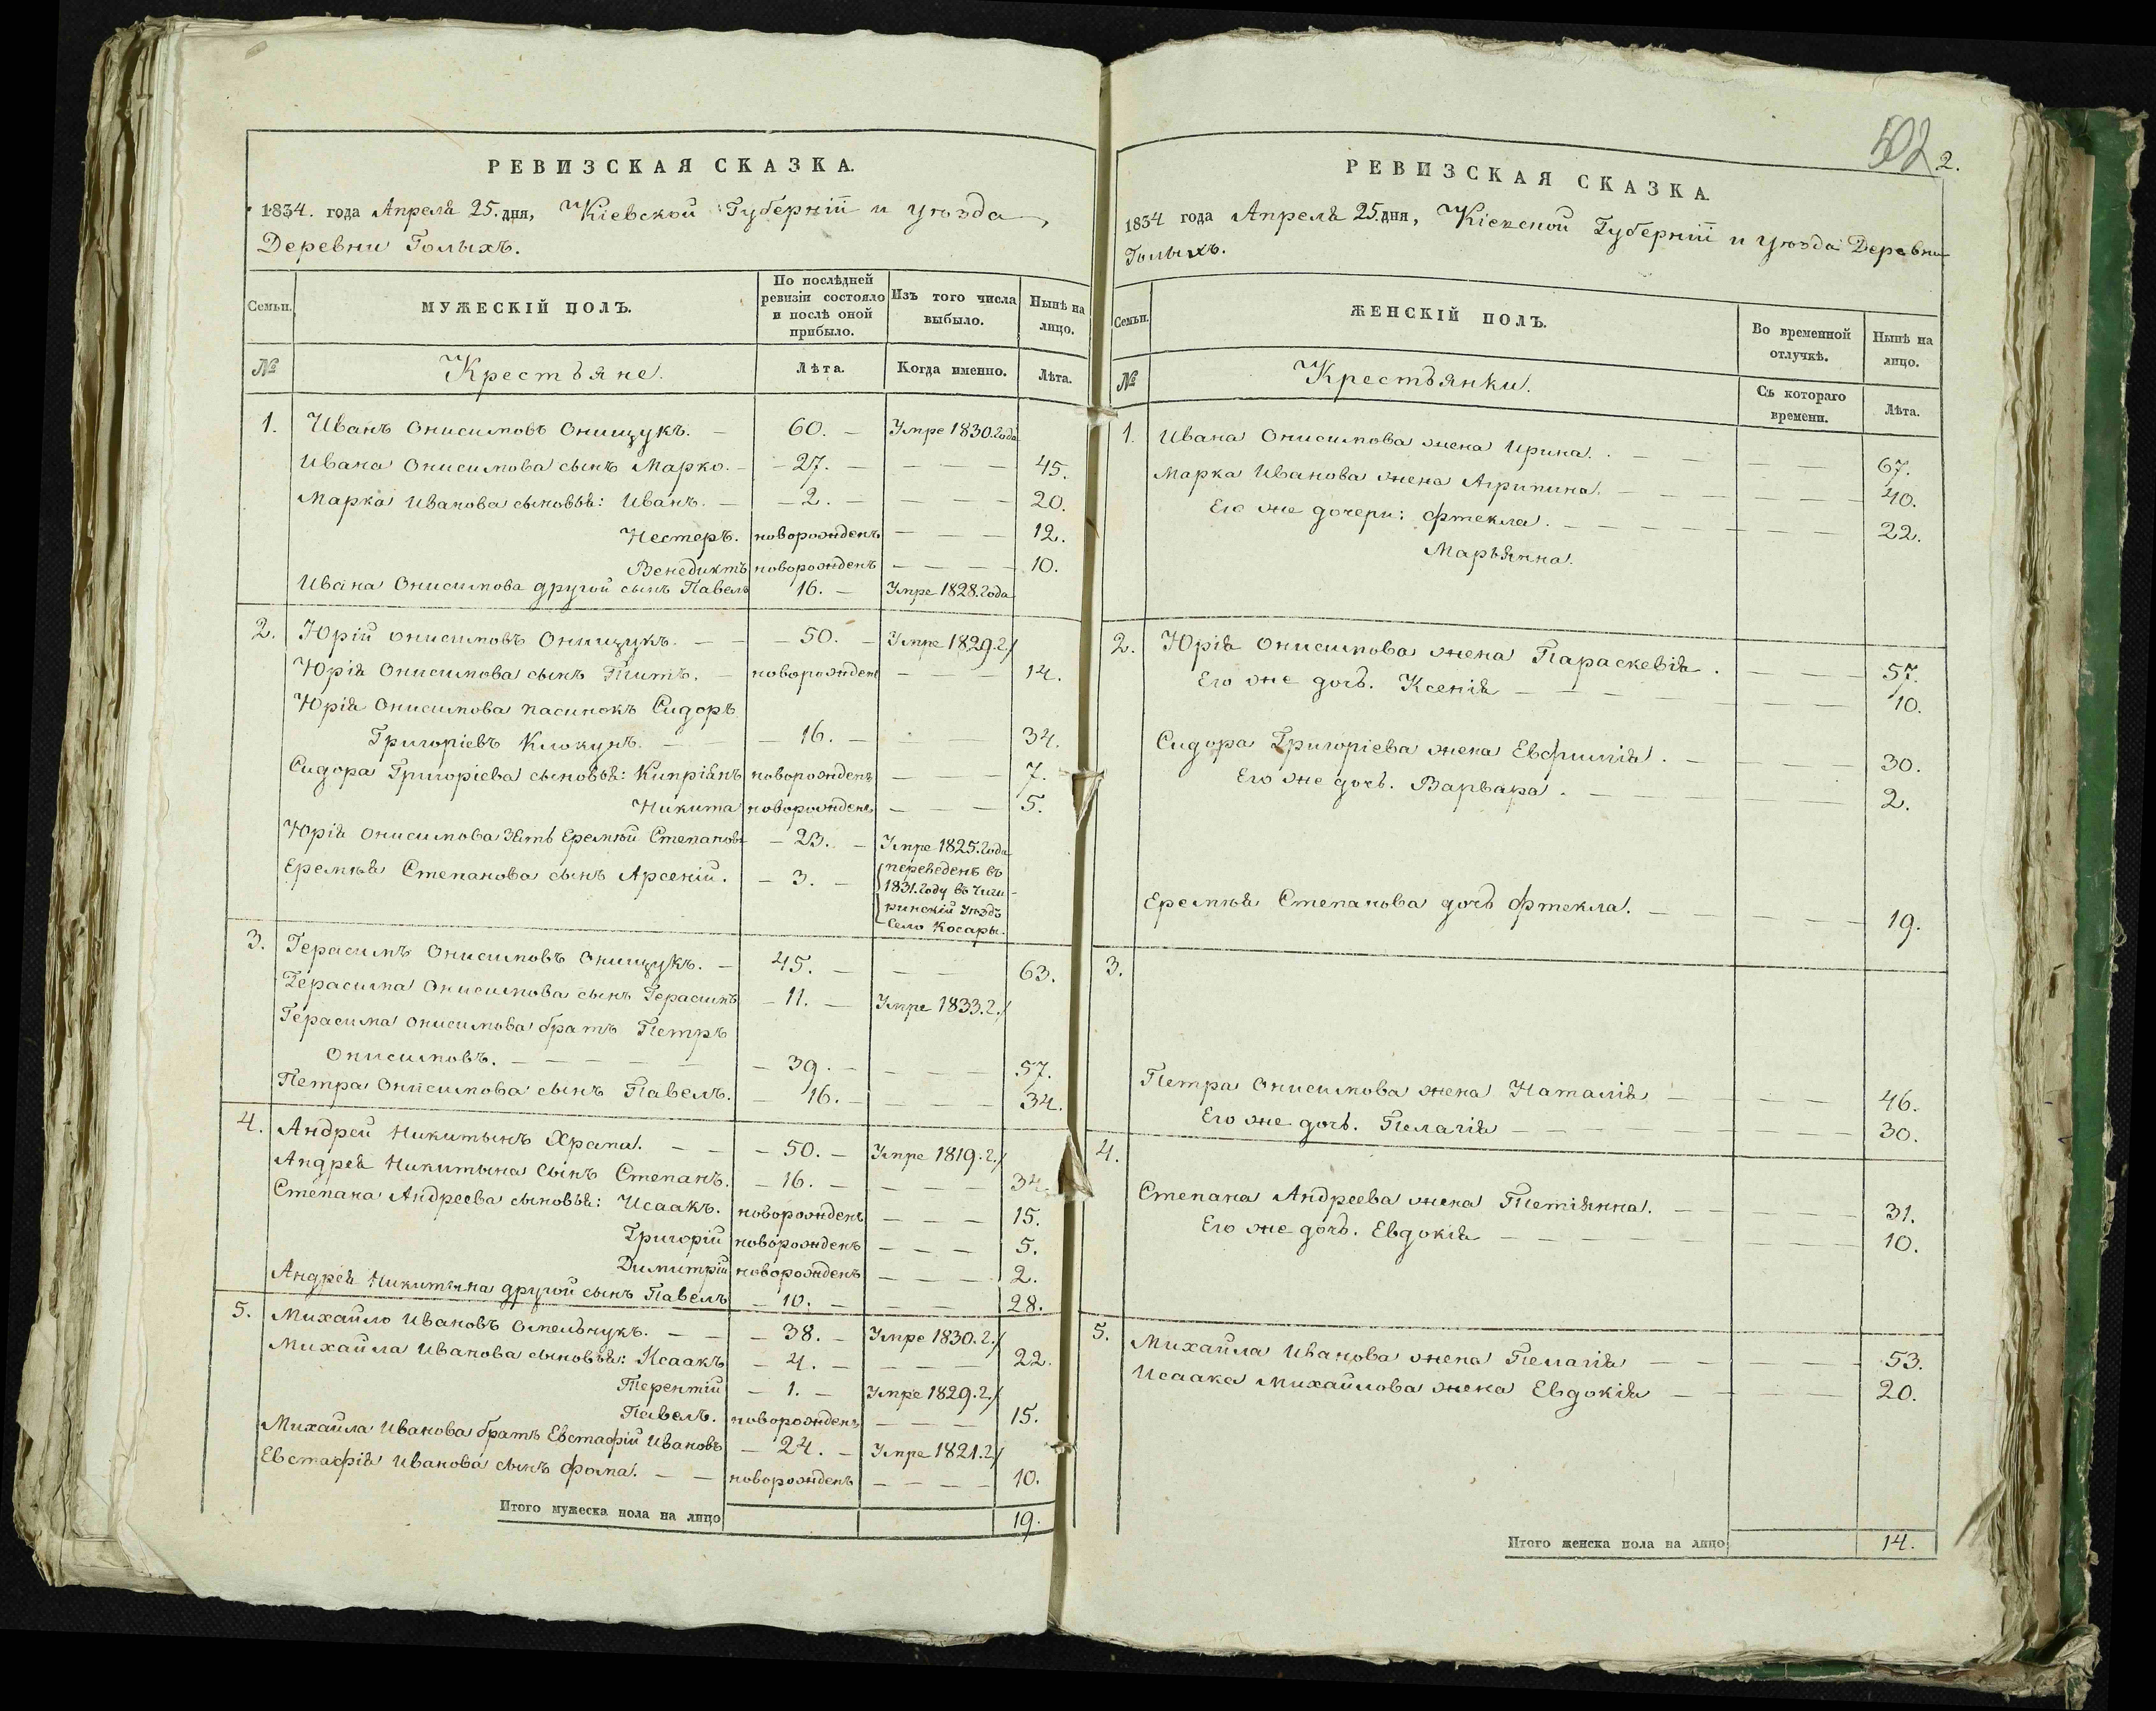 РЕВИЗСКАЯ СКАЗКА.
1834. года Апреля 25. дня, Кіевской Губерніи и уезда,
Деревни Голыхъ.
Семьи.
МУЖЕСКІЙ ПОЛЪ.
По послѣдней ревизіи состояло и послѣ оной прибыло.
Изъ того числа выбыло.
Нынѣ на лицо.
№
Крестьяне.
Лѣта.
Когда именно.
Лѣта.
1. Иванъ Онисимовъ Онищукъ. — 60. — Умре 1830. года
Ивана Онисимова сынъ Марко. — 27. — — — — 45.
Марка Иванова сыновья: Иванъ. — 2. — — — — 20.
Нестеръ. новорожденъ — — — 12.
Венедиктъ новорожденъ — — — — 10.
Ивана Онисимова другой сынъ Павелъ 16. — Умре 1828. года
2. Юрій Онисимовъ Онищукъ. — — 50. — Умре 1829. г/
Юрія Онисимова сынъ Титъ. — новорожден — — 14.
Юрія Онисимова пасинокъ Сидоръ
Григоріевъ Клокунъ. — — 16. — 34.
Сидора Григоріева сыновья: Кипріянъ новорожденъ — — — 7.
Никита новорожденъ — — — 5.
Юрія Онисимова зять Еремѣй Степановъ — 23. — Умре 1825. года
Еремѣя Степанова сынъ Арсеній. — 3. — переведенъ въ
1831. году въ Чиги-
ринскій уездъ
Село Косары.
3. Герасимъ Онисимовъ Онищукъ. — 45. — — — 63.
Герасима Онисимова сынъ Герасимъ — 11. — Умре 1833. г./
Герасима Онисимова братъ Петръ
Онисимовъ. — — — — 39. — — — — 57.
Петра Онисимова сынъ Павелъ. — 16. — — — — 34.
4. Андрей Никитынъ Храпа. — — — 50. — Умре 1819. г./
Андрея Никитына Сынъ Степанъ. — 16. — — — — 34.
Степана Андреева сыновья: Исаакъ. новорожденъ — — — 15.
Григорій новорожденъ — — — 5.
Димитрій новорожденъ — — — 2.
Андрея Никитына другой сынъ Павелъ — 10. — — — 28.
5. Михайло Ивановъ Омельчукъ. — — — 38. — Умре 1830. г./
Михайла Иванова сыновья: Исаакъ — 4. — — — — 22.
Терентій — 1. — Умре 1829. г./
Павелъ. новорожденъ — — — 15.
Михайла Иванова братъ Евстафій Ивановъ — 24. — Умре 1821. г/
Евстафія Иванова сынъ Фома. — — новорожденъ — — — — 10.
Итого мужеска пола на лицо 19.
502 2.
РЕВИЗСКАЯ СКАЗКА.
1834 года Апреля 25. дня, Кіевской Губерніи и уезда Деревни
Голыхъ.
Семьи.
ЖЕНСКІЙ ПОЛЪ.
Во временной отлучкѣ.
Нынѣ на лицо.
№
Крестьянки.
Съ котораго времени.
Лѣта.
1. Ивана Онисимова жена Ирина. — — — — 67.
Марка Иванова жена Агрипина. — — — — 40.
Его же дочери: Фтекла. — — — — 22.
Марьянна.
2. Юрія Онисимова жена Параскевія. — — — 57.
Его же дочь. Ксенія — — — — 10.
Сидора Григоріева жена Евфимія. — — — 30.
Его же дочь. Варвара. — — — — 2.
Еремѣя Степанова дочь Фтекла. — — — 19.
3.
Петра Онисимова жена Наталія — — — 46.
Его же дочь. Пелагія — — — — 30.
4.
Степана Андреева жена Тетіянна. — — — 31.
Его же дочь. Евдокія — — — — 10.
5. Михайла Иванова жена Пелагія — — — 53.
Исаака Михайлова жена Евдокія — — — 20.
Итого женска пола на лицо 14.